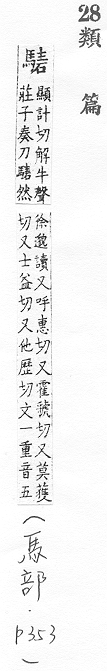 28 類篇
騞
顯計切解牛聲
莊子奏刀騞然
徐邈讀又呼惠切又霍虢切又莫獲
切又士益切又他歷切文一重音五
(馬部.p353)